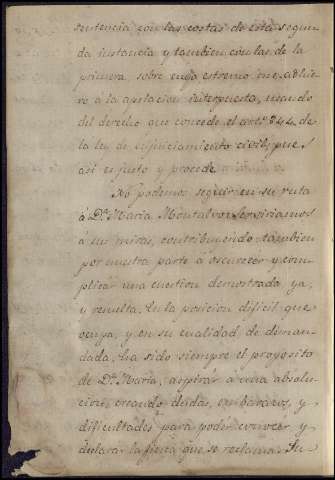 sentencia con las costas de esta segun
da instancia y tambien con las de la
primera sobre cuyo estremo me adhie
ro á la apelacion interpuesta, usando
del derecho que concede el art.º 844 de
la ley de enjuiciamiento civil; pues
asi es justo y procede
No podemos seguir en su ruta
á D.ª Maria Montalvo. Serviriamos
á sus miras, contribuyendo tambien
por nuestra parte á oscurecer y com
plicar una cuestion demostrada ya,
y resulta. En la posicion dificil que
ocupa, y en su cualidad de deman
dada, ha sido siempre el proposito
de D.ª Maria, aspirar á una absolu
cion, creando dudas, embarazos, y
dificultades para poder convencer y
declarar la finca que se reclama. Su